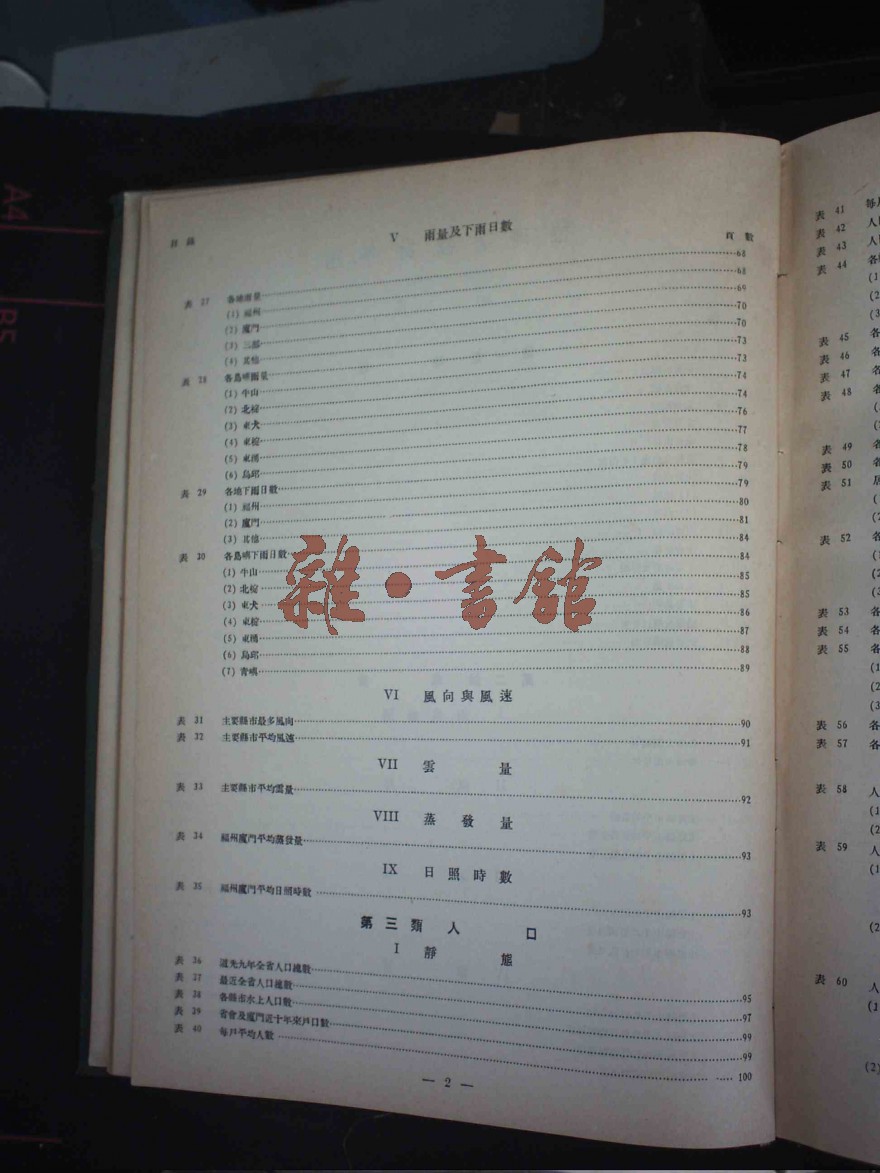 目錄
V 雨量及下雨日數
頁數
表 27 各地雨量 68
(1) 福州 68
(2) 廈門 69
(3) 三都 70
(4) 其他 70
表 28 各島嶼雨量 73
(1) 牛山 73
(2) 北椗 74
(3) 東犬 74
(4) 東椗 76
(5) 東湧 77
(6) 烏邱 78
表 29 各地下雨日數 79
(1) 福州 79
(2) 廈門 80
(3) 其他 81
表 30 各島嶼下雨日數 84
(1) 牛山 84
(2) 北椗 85
(3) 東犬 85
(4) 東椗 86
(5) 東湧 87
(6) 烏邱 88
(7) 青嶼 89
VI 風向與風速
表 31 主要縣市最多風向 90
表 32 主要縣市平均風速 91
VII 雲量
表 33 主要縣市平均雲量 92
VIII 蒸發量
表 34 福州廈門平均蒸發量 93
IX 日照時數
表 35 福州廈門平均日照時數 93
第三類 人口
I 靜態
表 36 道光九年全省人口總數 95
表 37 最近全省人口總數 97
表 38 各縣市水上人口數 99
表 39 省會及廈門近十年來戶口數 99
表 40 每戶平均人數 100
— 2 —
雜·書館
A4
B5
表 41 每
表 42 人
表 43 人
表 44 各
(1)
(2)
(3)
表 45 各
表 46 各
表 47 各
表 48 各
表 49 各
表 50 各
表 51 居
表 52 各
(1)
(2)
(3)
表 53 各
表 54 各
表 55 各
(1)
(2)
(3)
表 56 各
表 57 各
表 58 人
(1)
(2)
表 59 人
(1)
(2)
表 60 人
(1)
(2)